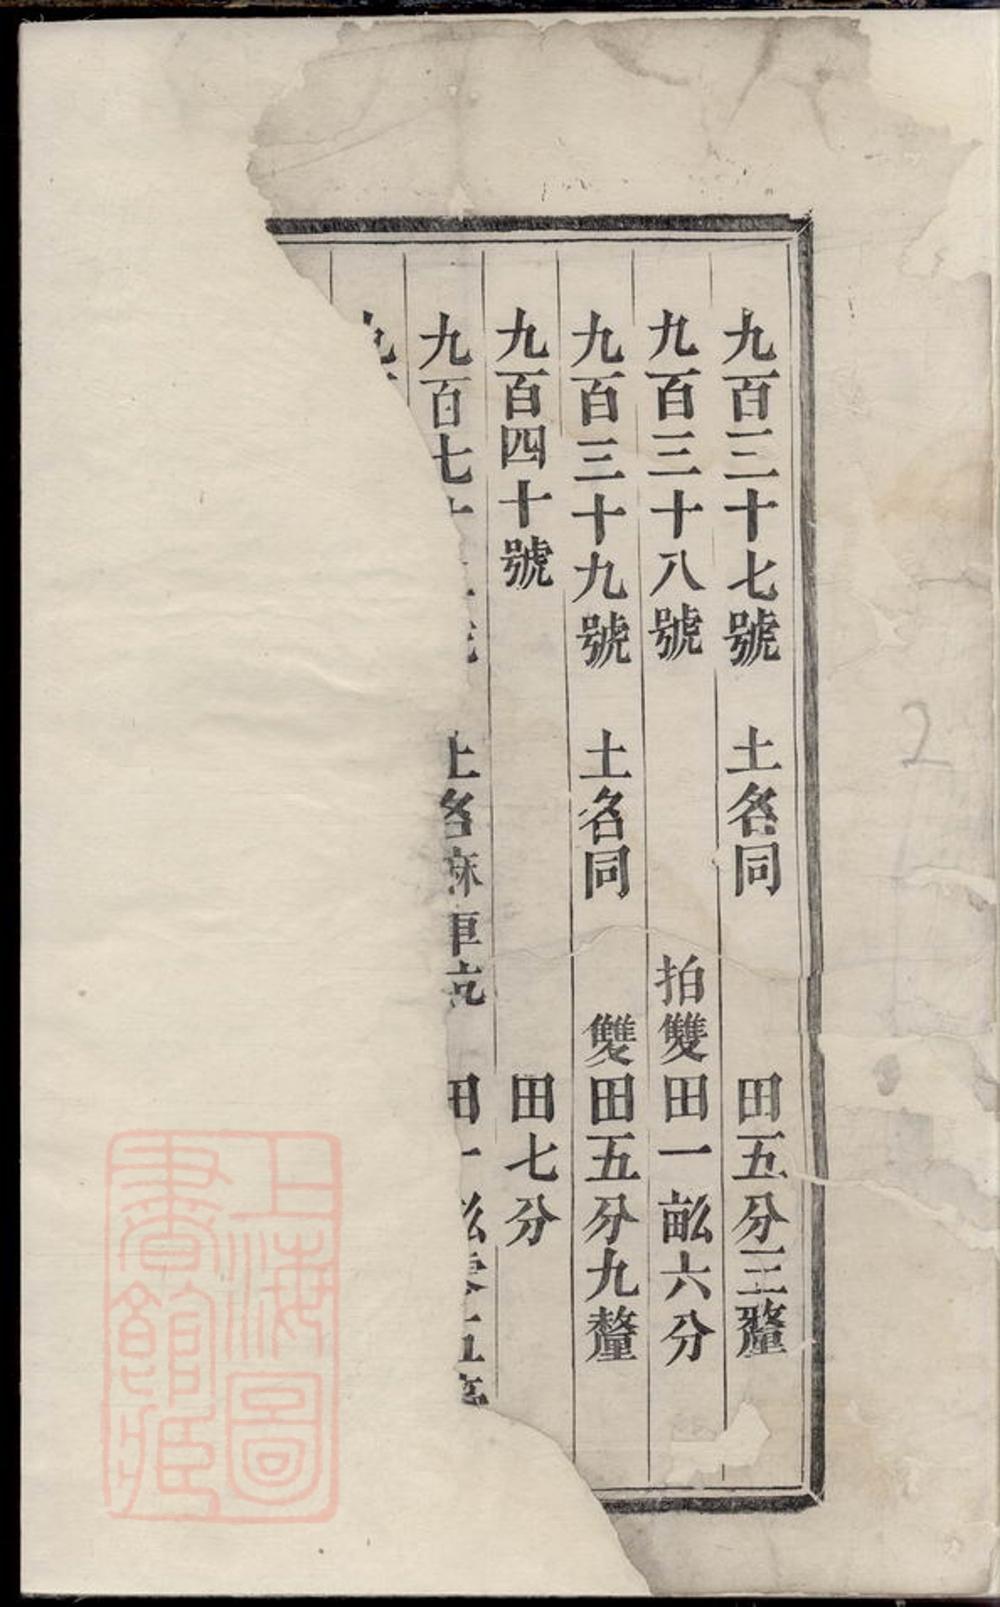 九百三十七號 土名同 田五分三釐
九百三十八號 拍雙田一畝六分
九百三十九號 土名同 雙田五分九釐
九百四十號 田七分
九百七十 號 土名 車 田一畝零 五
九
上海圖書館藏
2